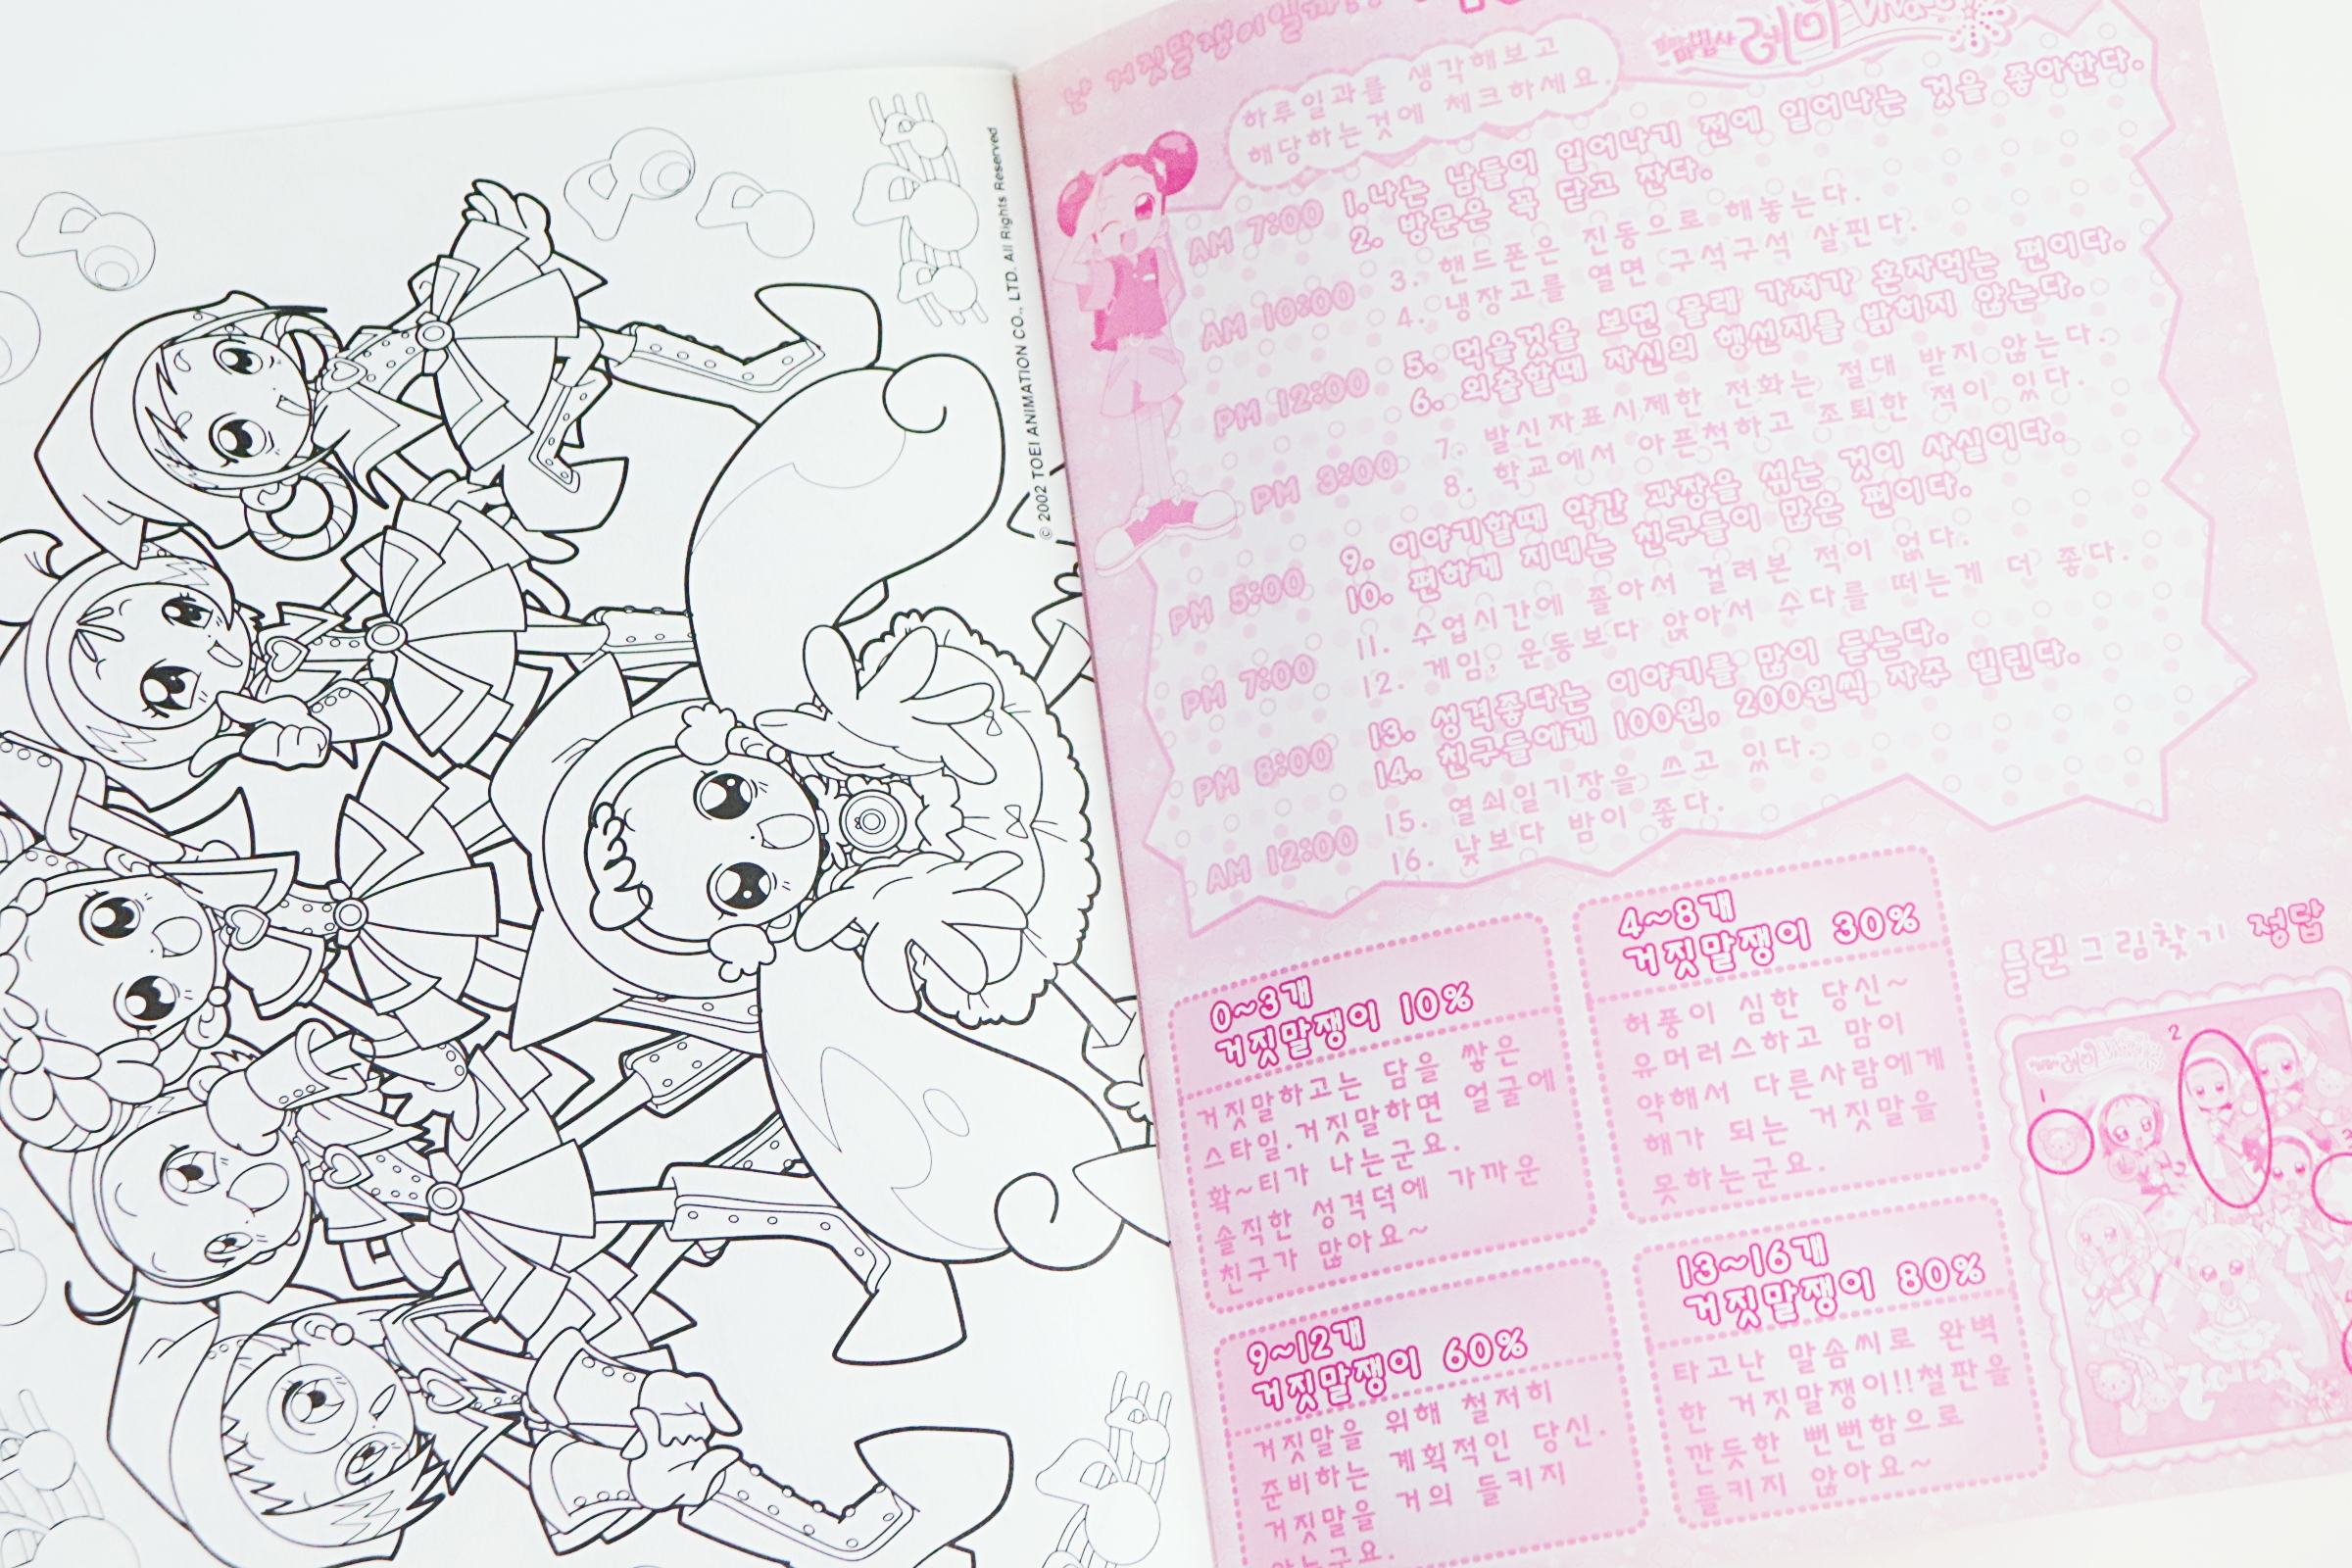 © 2002 TOEI ANIMATION CO., LTD. All Rights Reserved
난 거짓말쟁이일까?
레미
하루일과를 생각해보고
해당하는것에 체크하세요.
AM 7:00
1.나는 남들이 일어나기 전에 일어나는 것을 좋아한다.
2. 방문은 꼭 닫고 잔다.
AM 10:00
3. 핸드폰은 진동으로 해놓는다.
4. 냉장고를 열면 구석구석 살핀다.
PM 12:00
5. 먹을것을 보면 몰래 가져가 혼자먹는 편이다.
6. 외출할때 자신의 행선지를 밝히지 않는다.
PM 3:00
7. 발신자표시제한 전화는 절대 받지 않는다.
8. 학교에서 아픈척하고 조퇴한 적이 있다.
PM 5:00
9. 이야기할때 약간 과장을 섞는 것이 사실이다.
10. 편하게 지내는 친구들이 많은 편이다.
PM 7:00
11. 수업시간에 졸아서 걸려본 적이 없다.
12. 게임, 운동보다 앉아서 수다를 떠는게 더 좋다.
PM 8:00
13. 성격좋다는 이야기를 많이 듣는다.
14. 친구들에게 100원, 200원씩 자주 빌린다.
AM 12:00
15. 열쇠일기장을 쓰고 있다.
16. 낮보다 밤이 좋다.
0~3개
거짓말쟁이 10%
거짓말하고는 담을 쌓은
스타일.거짓말하면 얼굴에
확~티가 나는군요.
솔직한 성격덕에 가까운
친구가 많아요~
4~8개
거짓말쟁이 30%
허풍이 심한 당신~
유머러스하고 맘이
약해서 다른사람에게
해가 되는 거짓말을
못하는군요.
9~12개
거짓말쟁이 60%
거짓말을 위해 철저히
준비하는 계획적인 당신.
거짓말을 거의 들키지
않는군요.
13~16개
거짓말쟁이 80%
타고난 말솜씨로 완벽
한 거짓말쟁이!!철판을
깐듯한 뻔뻔함으로
들키지 않아요~
틀린그림찾기 정답
1
2